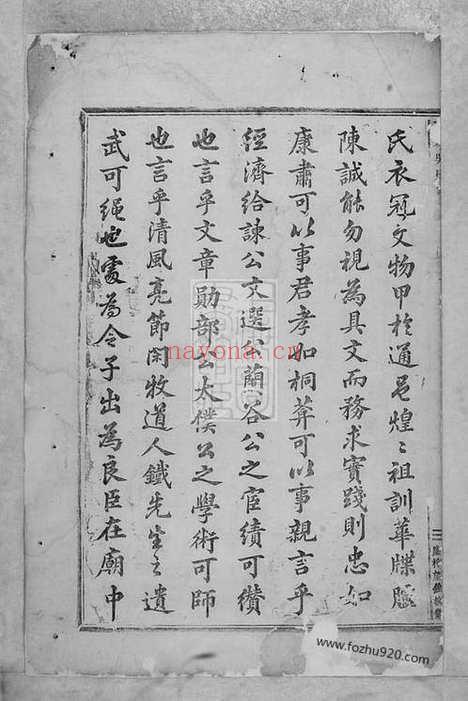 氏衣冠文物甲於通邑煌〻祖訓華牒臚
陳誠能勿視為具文而務求實踐則忠如
康肅可以事君孝如桐葬可以事親言乎
經濟給諫公文選公蘭谷公之宦績可纘
也言乎文章勛部公太樸公之學術可師
也言乎清風亮節閑牧道人鐵先生之遺
武可繩也處為令子出為良臣在廟中
nayona.cn
www.fozhu920.com